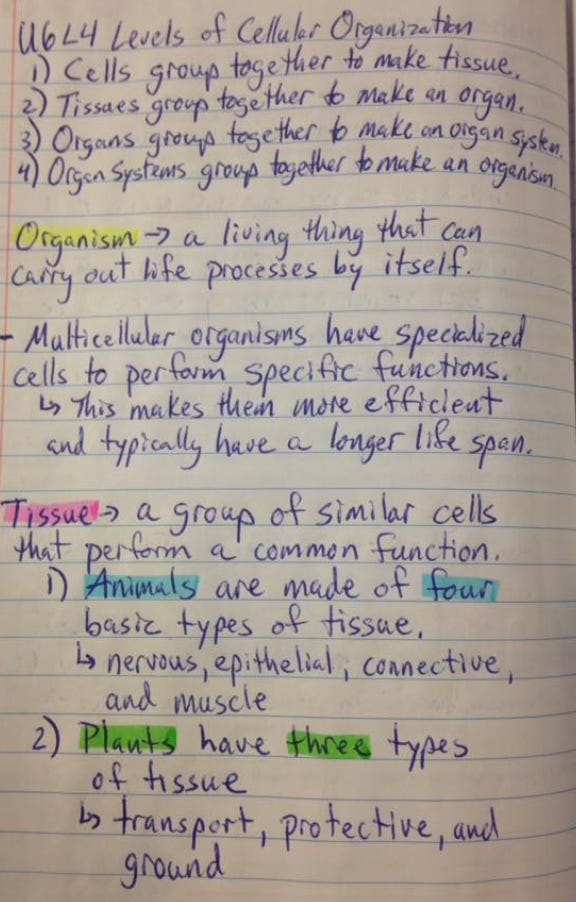 U6L4 Levels of Cellular Organization
1) Cells group together to make tissue.
2) Tissues group together to make an organ.
3) Organs group together to make an organ system.
4) Organ Systems group together to make an organism.
Organism → a living thing that can
carry out life processes by itself.
- Multicellular organisms have specialized
cells to perform specific functions.
↳ This makes them more efficient
and typically have a longer life span.
Tissue → a group of similar cells
that perform a common function.
1) Animals are made of four
basic types of tissue.
↳ nervous, epithelial, connective,
and muscle
2) Plants have three types
of tissue
↳ transport, protective, and
ground